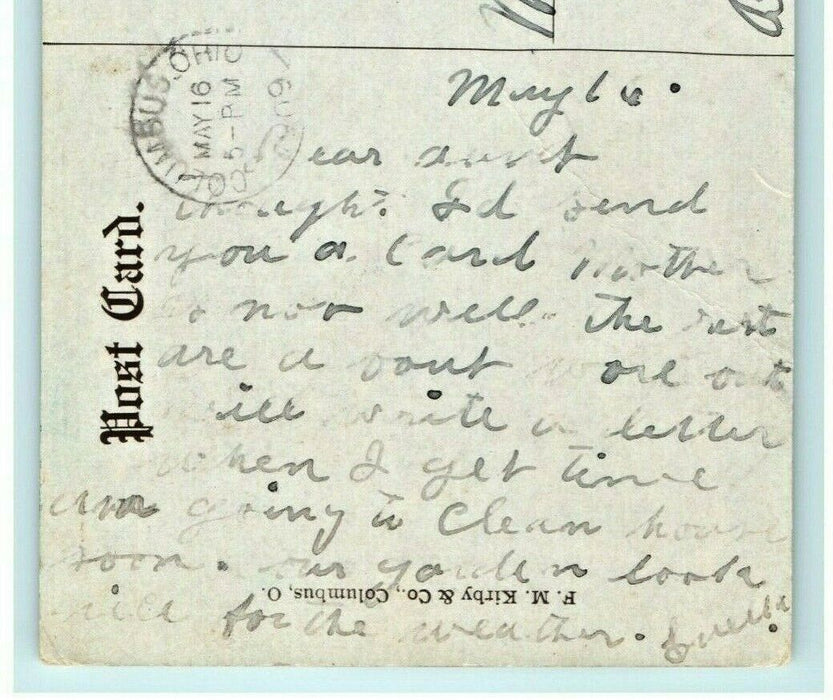 COLUMBUS, OHIO
MAY 16
5-PM
1909
Post Card.
May 16.
Dear aunt
thought I'd send
you a Card Mother
is not well. the rest
are a bout wore out
will write a letter
when I get time
am going to Clean house
soon. our garden look
for the weather. Luella
F. M. Kirby & Co., Columbus, O.